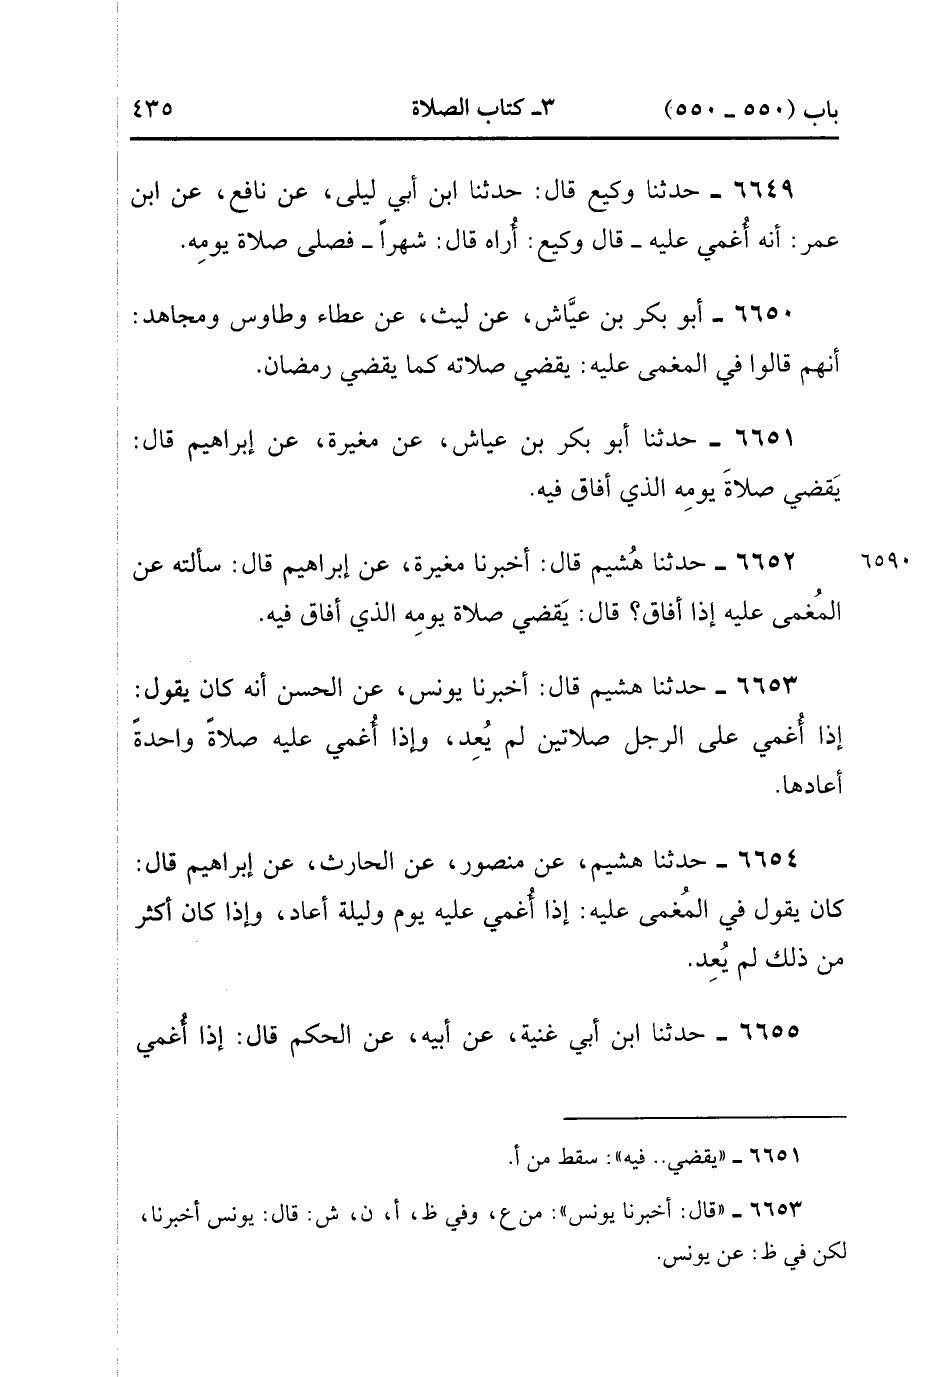 باب (٥٥٠ ـ ٥٥٠) ٣ـ كتاب الصلاة ٤٣٥
٦٦٤٩ ـ حدثنا وكيع قال: حدثنا ابن أبي ليلى، عن نافع، عن ابن
عمر: أنه أُغمي عليه ـ قال وكيع: أُراه قال: شهراً ـ فصلى صلاة يومِه.
٦٦٥٠ ـ أبو بكر بن عيَّاش، عن ليث، عن عطاء وطاوس ومجاهد:
أنهم قالوا في المغمى عليه: يقضي صلاته كما يقضي رمضان.
٦٦٥١ ـ حدثنا أبو بكر بن عياش، عن مغيرة، عن إبراهيم قال:
يَقضي صلاةَ يومِه الذي أفاق فيه.
٦٥٩٠ ٦٦٥٢ ـ حدثنا هُشيم قال: أخبرنا مغيرة، عن إبراهيم قال: سألته عن
المُغمى عليه إذا أفاق؟ قال: يَقضي صلاة يومِه الذي أفاق فيه.
٦٦٥٣ ـ حدثنا هشيم قال: أخبرنا يونس، عن الحسن أنه كان يقول:
إذا أُغمي على الرجل صلاتين لم يُعِد، وإذا أُغمي عليه صلاةً واحدةً
أعادها.
٦٦٥٤ ـ حدثنا هشيم، عن منصور، عن الحارث، عن إبراهيم قال:
كان يقول في المُغمى عليه: إذا أُغمي عليه يوم وليلة أعاد، وإذا كان أكثر
من ذلك لم يُعِد.
٦٦٥٥ ـ حدثنا ابن أبي غنية، عن أبيه، عن الحكم قال: إذا أُغمي
٦٦٥١ ـ «يقضي.. فيه»: سقط من أ.
٦٦٥٣ ـ «قال: أخبرنا يونس»: من ع، وفي ظ، أ، ن، ش: قال: يونس أخبرنا،
لكن في ظ: عن يونس.